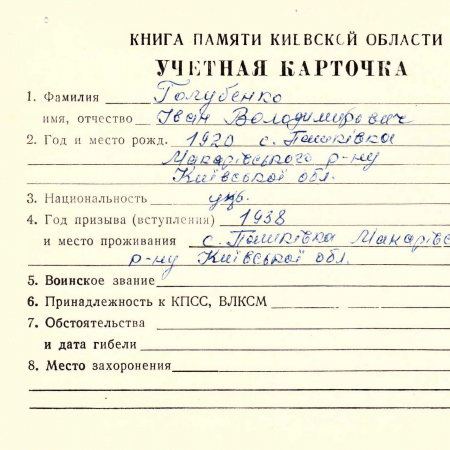 КНИГА ПАМЯТИ КИЕВСКОЙ ОБЛАСТИ
УЧЕТНАЯ КАРТОЧКА
1. Фамилия Голубенко
имя, отчество Іван Володимирович
2. Год и место рожд. 1920 с. Пашківка
Макарівського р-ну
Київської обл.
3. Национальность укр.
4. Год призыва (вступления) 1938
и место проживания с. Пашківка Макарівс
р-ну Київської обл.
5. Воинское звание
6. Принадлежность к КПСС, ВЛКСМ
7. Обстоятельства
и дата гибели
8. Место захоронения